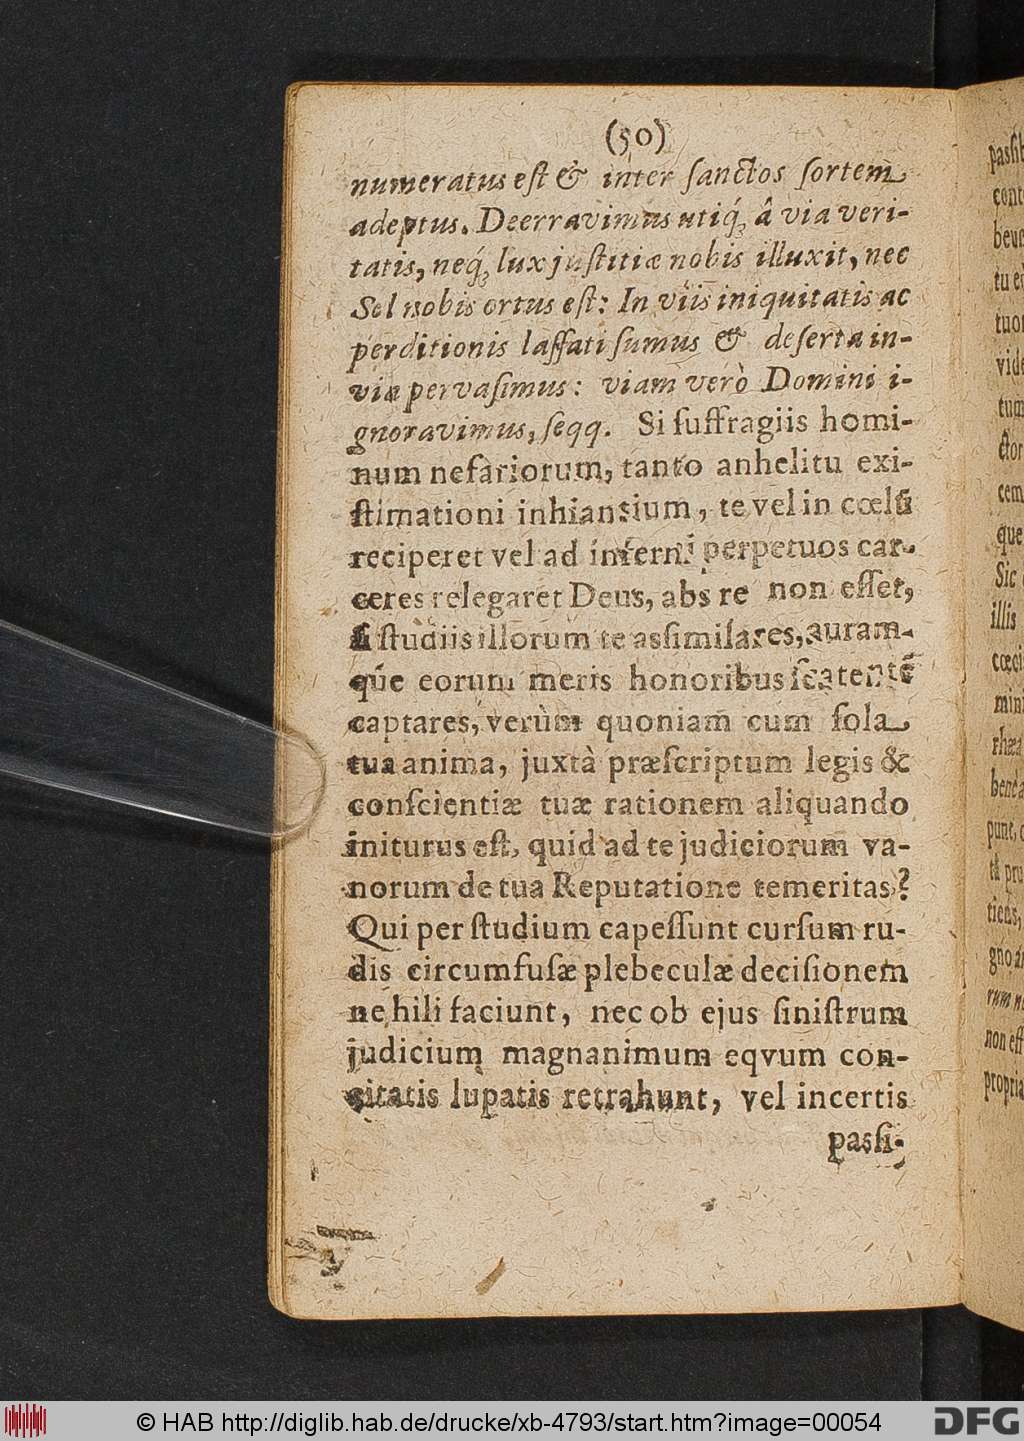 (50)
numeratus eſt & inter ſanctos ſortem
adeptus. Deerravimus utiq́; â via veri-
tatis, neq́; lux juſtitiæ nobis illuxit, nec
Sol nobis ortus eſt: In viis iniquitatis ac
perditionis laſſati ſumus & deſerta in-
via pervaſimus: viam verò Domini i-
gnoravimus, ſeqq. Si ſuffragiis homi-
num nefariorum, tanto anhelitu exi-
ſtimationi inhiantium, te vel in cœlũ
reciperet vel ad inferni perpetuos car-
ceres relegaret Deus, abs re non eſſet,
ſi ſtudiis illorum te assimilares, auram-
qúe eorum meris honoribus ſcatentẽ
captares, verùm quoniam cum ſola
tua anima, juxtà præſcriptum legis &
conſcientiæ tuæ rationem aliquando
initurus eſt, quid ad te judiciorum va-
norum de tua Reputatione temeritas?
Qui per ſtudium capeſſunt curſum ru-
dis circumfuſæ plebeculæ deciſionem
ne hili faciunt, nec ob ejus ſiniſtrum
judicium magnanimum eqvum con-
citatis lupatis retrahunt, vel incertis
passi-
passib
cont
tuor
vide
tum
ctor
cem
que
Sic
illis
mini
punt,
tiens,
non eſſ
propria
© HAB http://diglib.hab.de/drucke/xb-4793/start.htm?image=00054
DFG